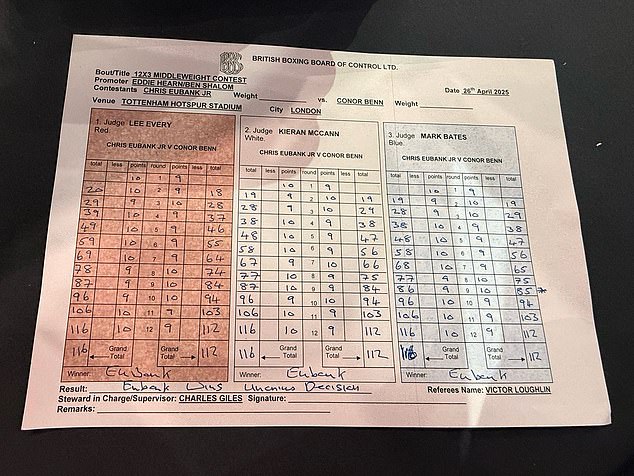 BRITISH BOXING BOARD OF CONTROL LTD.
Bout/Title 12X3 MIDDLEWEIGHT CONTEST
Promoter EDDIE HEARN/BEN SHALOM Date 26th April 2025
Contestants CHRIS EUBANK JR Weight vs. CONOR BENN Weight
Venue TOTTENHAM HOTSPUR STADIUM City LONDON
1. Judge LEE EVERY
Red.
CHRIS EUBANK JR V CONOR BENN
total less points round points less total
10 1 9
20 10 2 9 18
29 9 3 10 28
39 10 4 9 37
49 10 5 9 46
59 10 6 9 55
69 10 7 9 64
78 9 8 10 74
87 9 9 10 84
96 9 10 10 94
106 10 11 9 103
116 10 12 9 112
116 Grand Total 112
Winner: Eubank
2. Judge KIERAN MCCANN
White.
CHRIS EUBANK JR V CONOR BENN
total less points round points less total
10 1 9
19 9 2 10 19
28 9 3 10 29
38 10 4 9 38
48 10 5 9 47
58 10 6 9 56
67 9 7 10 66
77 10 8 9 75
87 10 9 9 84
96 9 10 10 94
106 10 11 9 103
116 10 12 9 112
116 Grand Total 112
Winner: Eubank
3. Judge MARK BATES
Blue.
CHRIS EUBANK JR V CONOR BENN
total less points round points less total
10 1 9
19 9 2 10 19
28 9 3 10 29
38 10 4 9 38
48 10 5 9 47
58 10 6 9 56
68 10 7 9 65
77 9 8 10 75
86 9 9 10 85*
96 10 10 9 94
106 10 11 9 103
116 10 12 9 112
116 Grand Total 112
Winner: Eubank
Result: Eubank Wins Unanius Decision Referees Name: VICTOR LOUGHLIN
Steward in Charge/Supervisor: CHARLES GILES Signature:
Remarks: